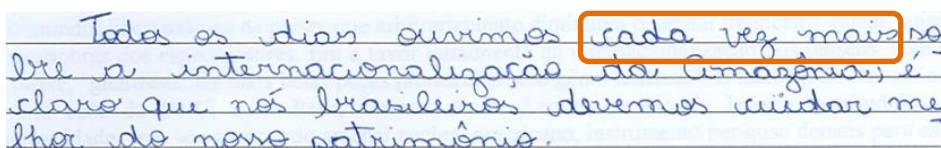 Todos os dias ouvimos cada vez mais so
bre a internacionalização da Amazônia, é
claro que nós brasileiros devemos cuidar me
lhor do nosso patrimônio.